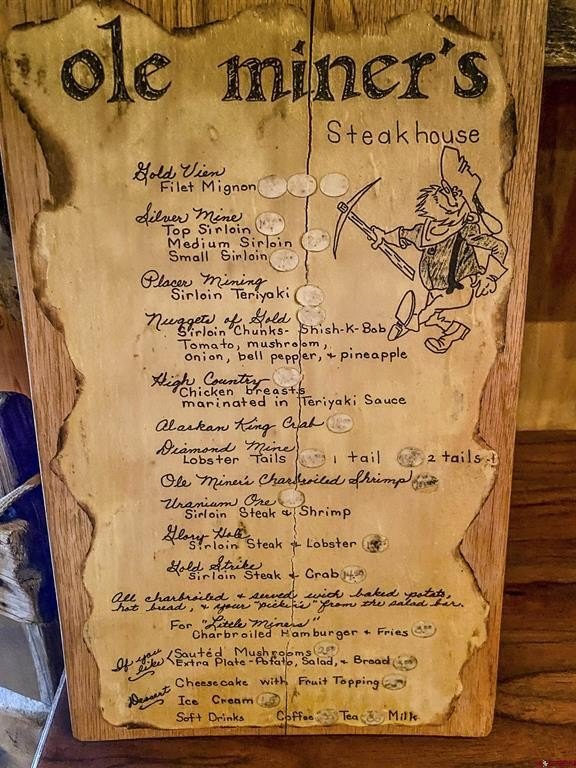 ole miner's
Steakhouse
Gold Vien
Filet Mignon
Silver Mine
Top Sirloin
Medium Sirloin
Small Sirloin
Placer Mining
Sirloin Teriyaki
Nuggets of Gold
Sirloin Chunks- Shish-K-Bob
Tomato, mushroom,
onion, bell pepper, & pineapple
High Country
Chicken breasts
marinated in Teriyaki Sauce
Alaskan King Crab
Diamond Mine
Lobster Tails 1 tail 2 tails
Ole Miner's Charbroiled Shrimp
Uranium Ore
Sirloin Steak & Shrimp
Glory Hole
Sirloin Steak & Lobster
Gold Strike
Sirloin Steak & Crab
All charbroiled & served with baked potato,
hot bread, & your "pick'is" from the salad bar.
For "Little Miners"
Charbroiled Hamburger & Fries
If you like
Sautéd Mushrooms
Extra Plate-Potato, Salad, & Bread
Cheesecake with Fruit Topping
Dessert
Ice Cream
Soft Drinks Coffee Tea Milk